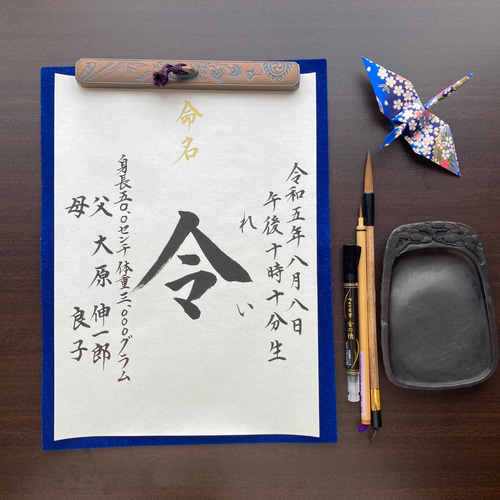 命名
令和五年八月八日
午後十時十分生
れい
令
身長五〇.〇センチ 体重三.〇〇〇グラム
父 大原 伸一郎
母 良子